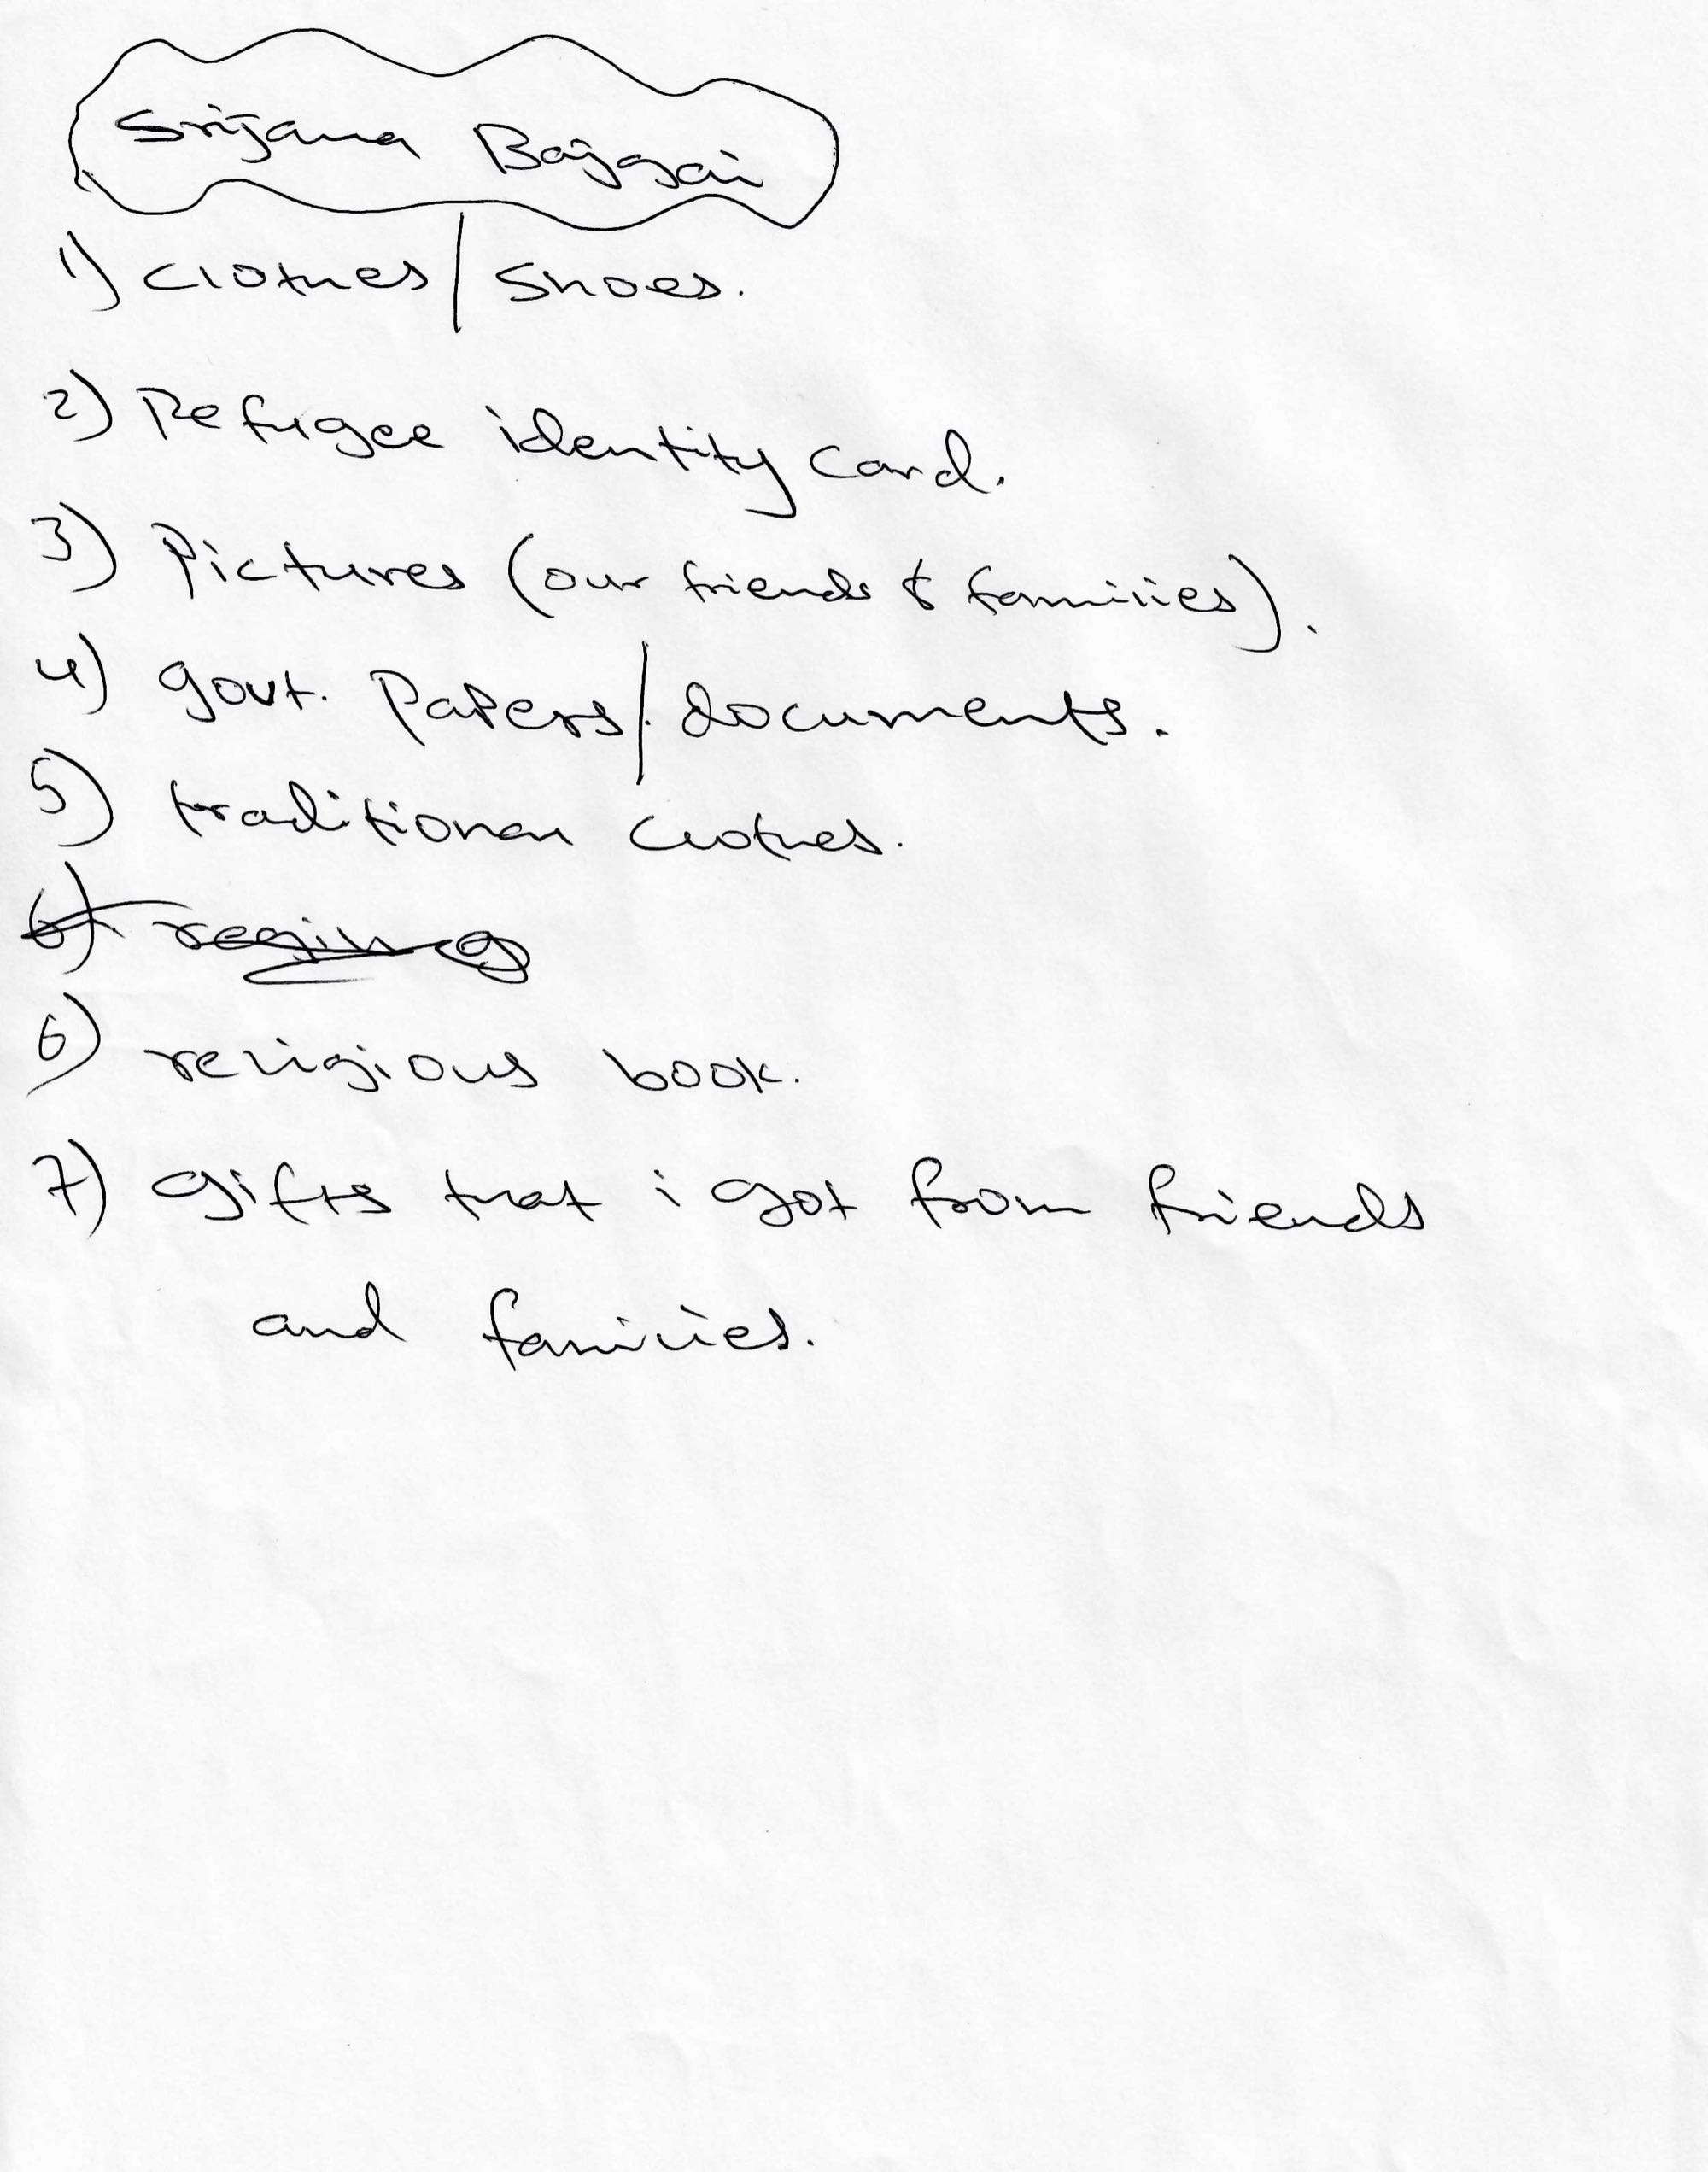 Srijana Bajgai
1) Clothes/Shoes.
2) Refugee identity card.
3) Pictures (our friends & families).
4) govt. Papers/documents.
5) traditional clothes.
6)
6) religious book.
7) gifts that i got from friends
and families.